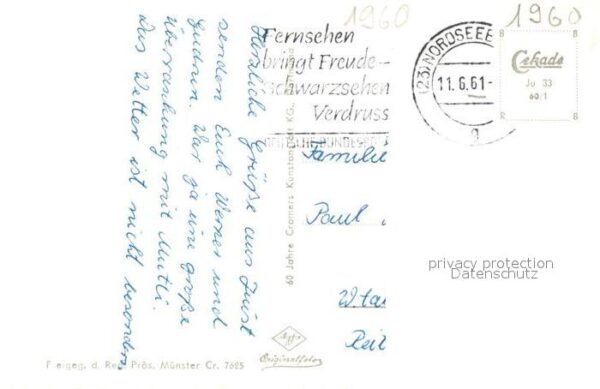 1960
1960
Fernsehen
bringt Freude-
schwarzsehen
Verdruss
DEUTSCHE BUNDESPOST
(23) NORDSEEB
11.6.61-
a
Cekade
Ju 33
60/1
Herzliche Grüße aus Juist
senden Euch Werner und
Gudrun. War ja eine große
Überraschung mit Mutti.
Das Wetter ist nicht besonders
60 Jahre Cramers Kunstanstalt KG.,
Familie
Paul
Reit
privacy protection
Datenschutz
Agfa
Originalfoto
Freigeg. d. Reg. Präs. Münster Cr. 7625